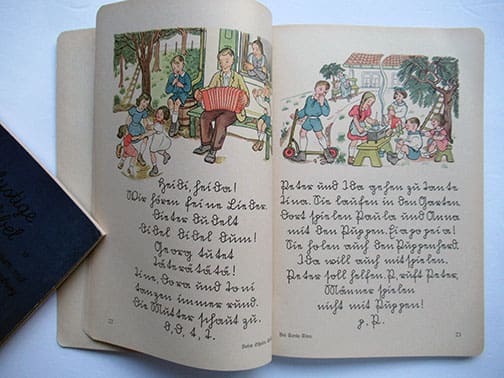 Heidi, heida!
Wir hören feine Lieder.
Dieter dudelt
didel didel dum!
Georg tutet
täterätätä!
Tine, Dora und Toni
tanzen immer rund.
Die Mutter schaut zu.
D, d, t, T.
22
Peter und Ida gehen zu Tante
Tina. Sie laufen in den Garten.
Dort spielen Paula und Anna
mit den Puppen. Eiapopeia!
Sie holen auch den Puppenherd.
Ida will auch mitspielen.
Peter soll helfen. P, ruft Peter,
Männer spielen
nicht mit Puppen!
p, P.
Bei Tante Tina
23